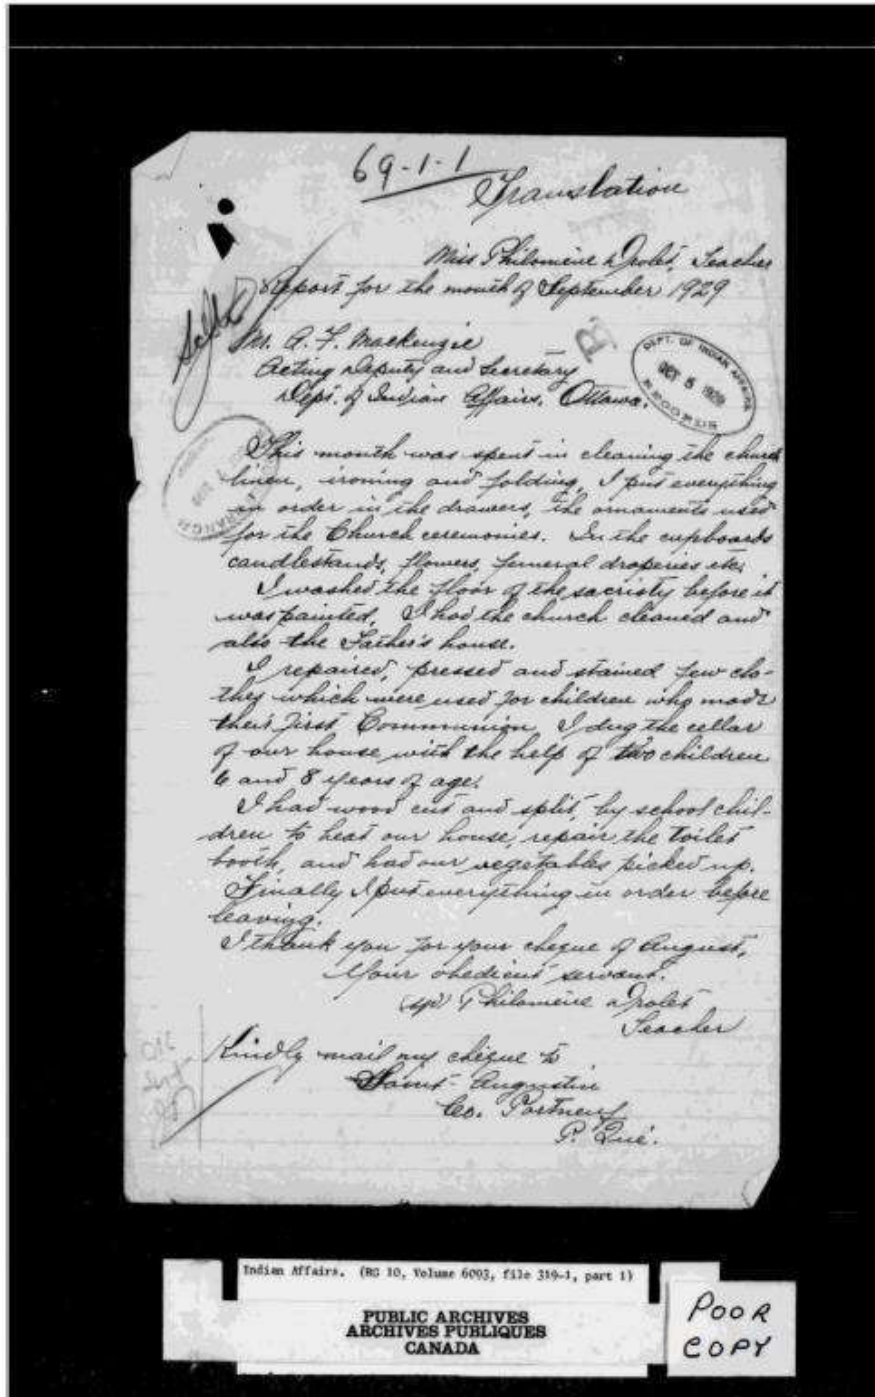 69-1-1
Translation
Miss Philomène Drolet, Teacher
Report for the month of September 1929
Mr. A. F. Mackenzie
Acting Deputy and Secretary
Dept. of Indian Affairs, Ottawa.
DEPT. OF INDIAN AFFAIRS
OCT 5 1929
RECORDS
This month was spent in cleaning the church
linen, ironing and folding, I put everything
in order in the drawers, the ornaments used
for the Church ceremonies. In the cupboards
candlestands, flowers, funeral draperies etc.
I washed the floor of the sacristy before it
was painted, I had the church cleaned and
also the Father's house.
I repaired, pressed and stained few clo-
thes which were used for children who made
their first Communion. I dug the cellar
of our house with the help of two children
6 and 8 years of age.
I had wood cut and split, by school chil-
dren to heat our house, repair the toilet
booth, and had our vegetables picked up.
Finally I put everything in order before
leaving.
I thank you for your cheque of August,
Your obedient servant.
Philomène Drolet
Teacher
Kindly mail my cheque to
Saint-Augustin
Co. Portneuf
P. Qué.
Indian Affairs. (RG 10, Volume 6093, file 319-1, part 1)
PUBLIC ARCHIVES
ARCHIVES PUBLIQUES
CANADA
POOR
COPY